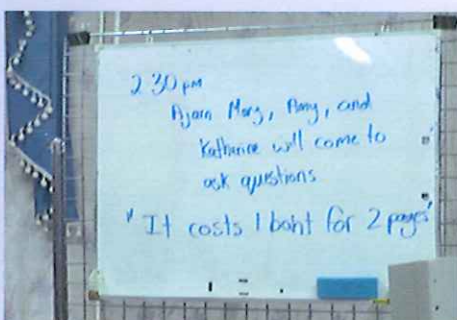 2 30 pm
Ajarn Mary, Amy, and
Katherine will come to
ask questions
"It costs 1 baht for 2 pages"